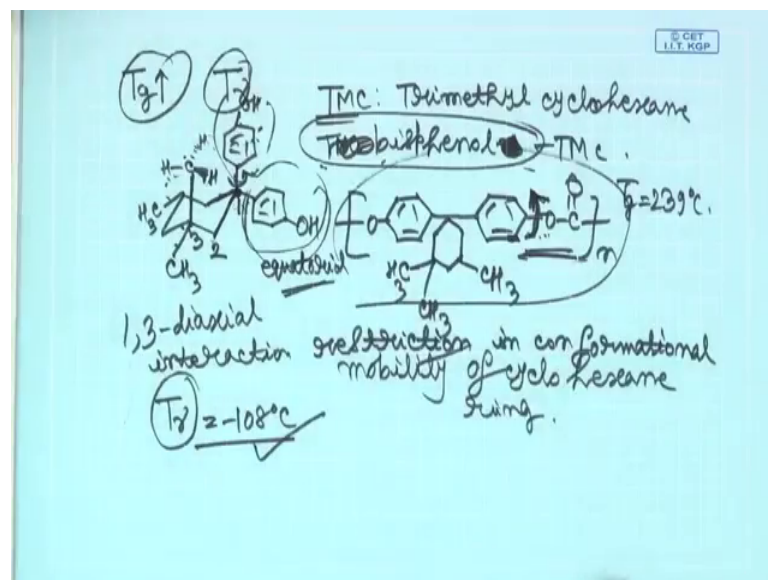 © CET
I.I.T. KGP
Tg↑ Tγ
TMC: Trimethyl cyclohexane
bisphenol -TMC.
OH
H
H-C
H
H3C
CH3
3
2
1
OH
equatorial
[O
O-C
O
]n
Tg=239°C.
H3C
CH3
CH3
1,3-diaxial
interaction
restriction in conformational
mobility of cyclohexane
ring.
Tγ = -108°C